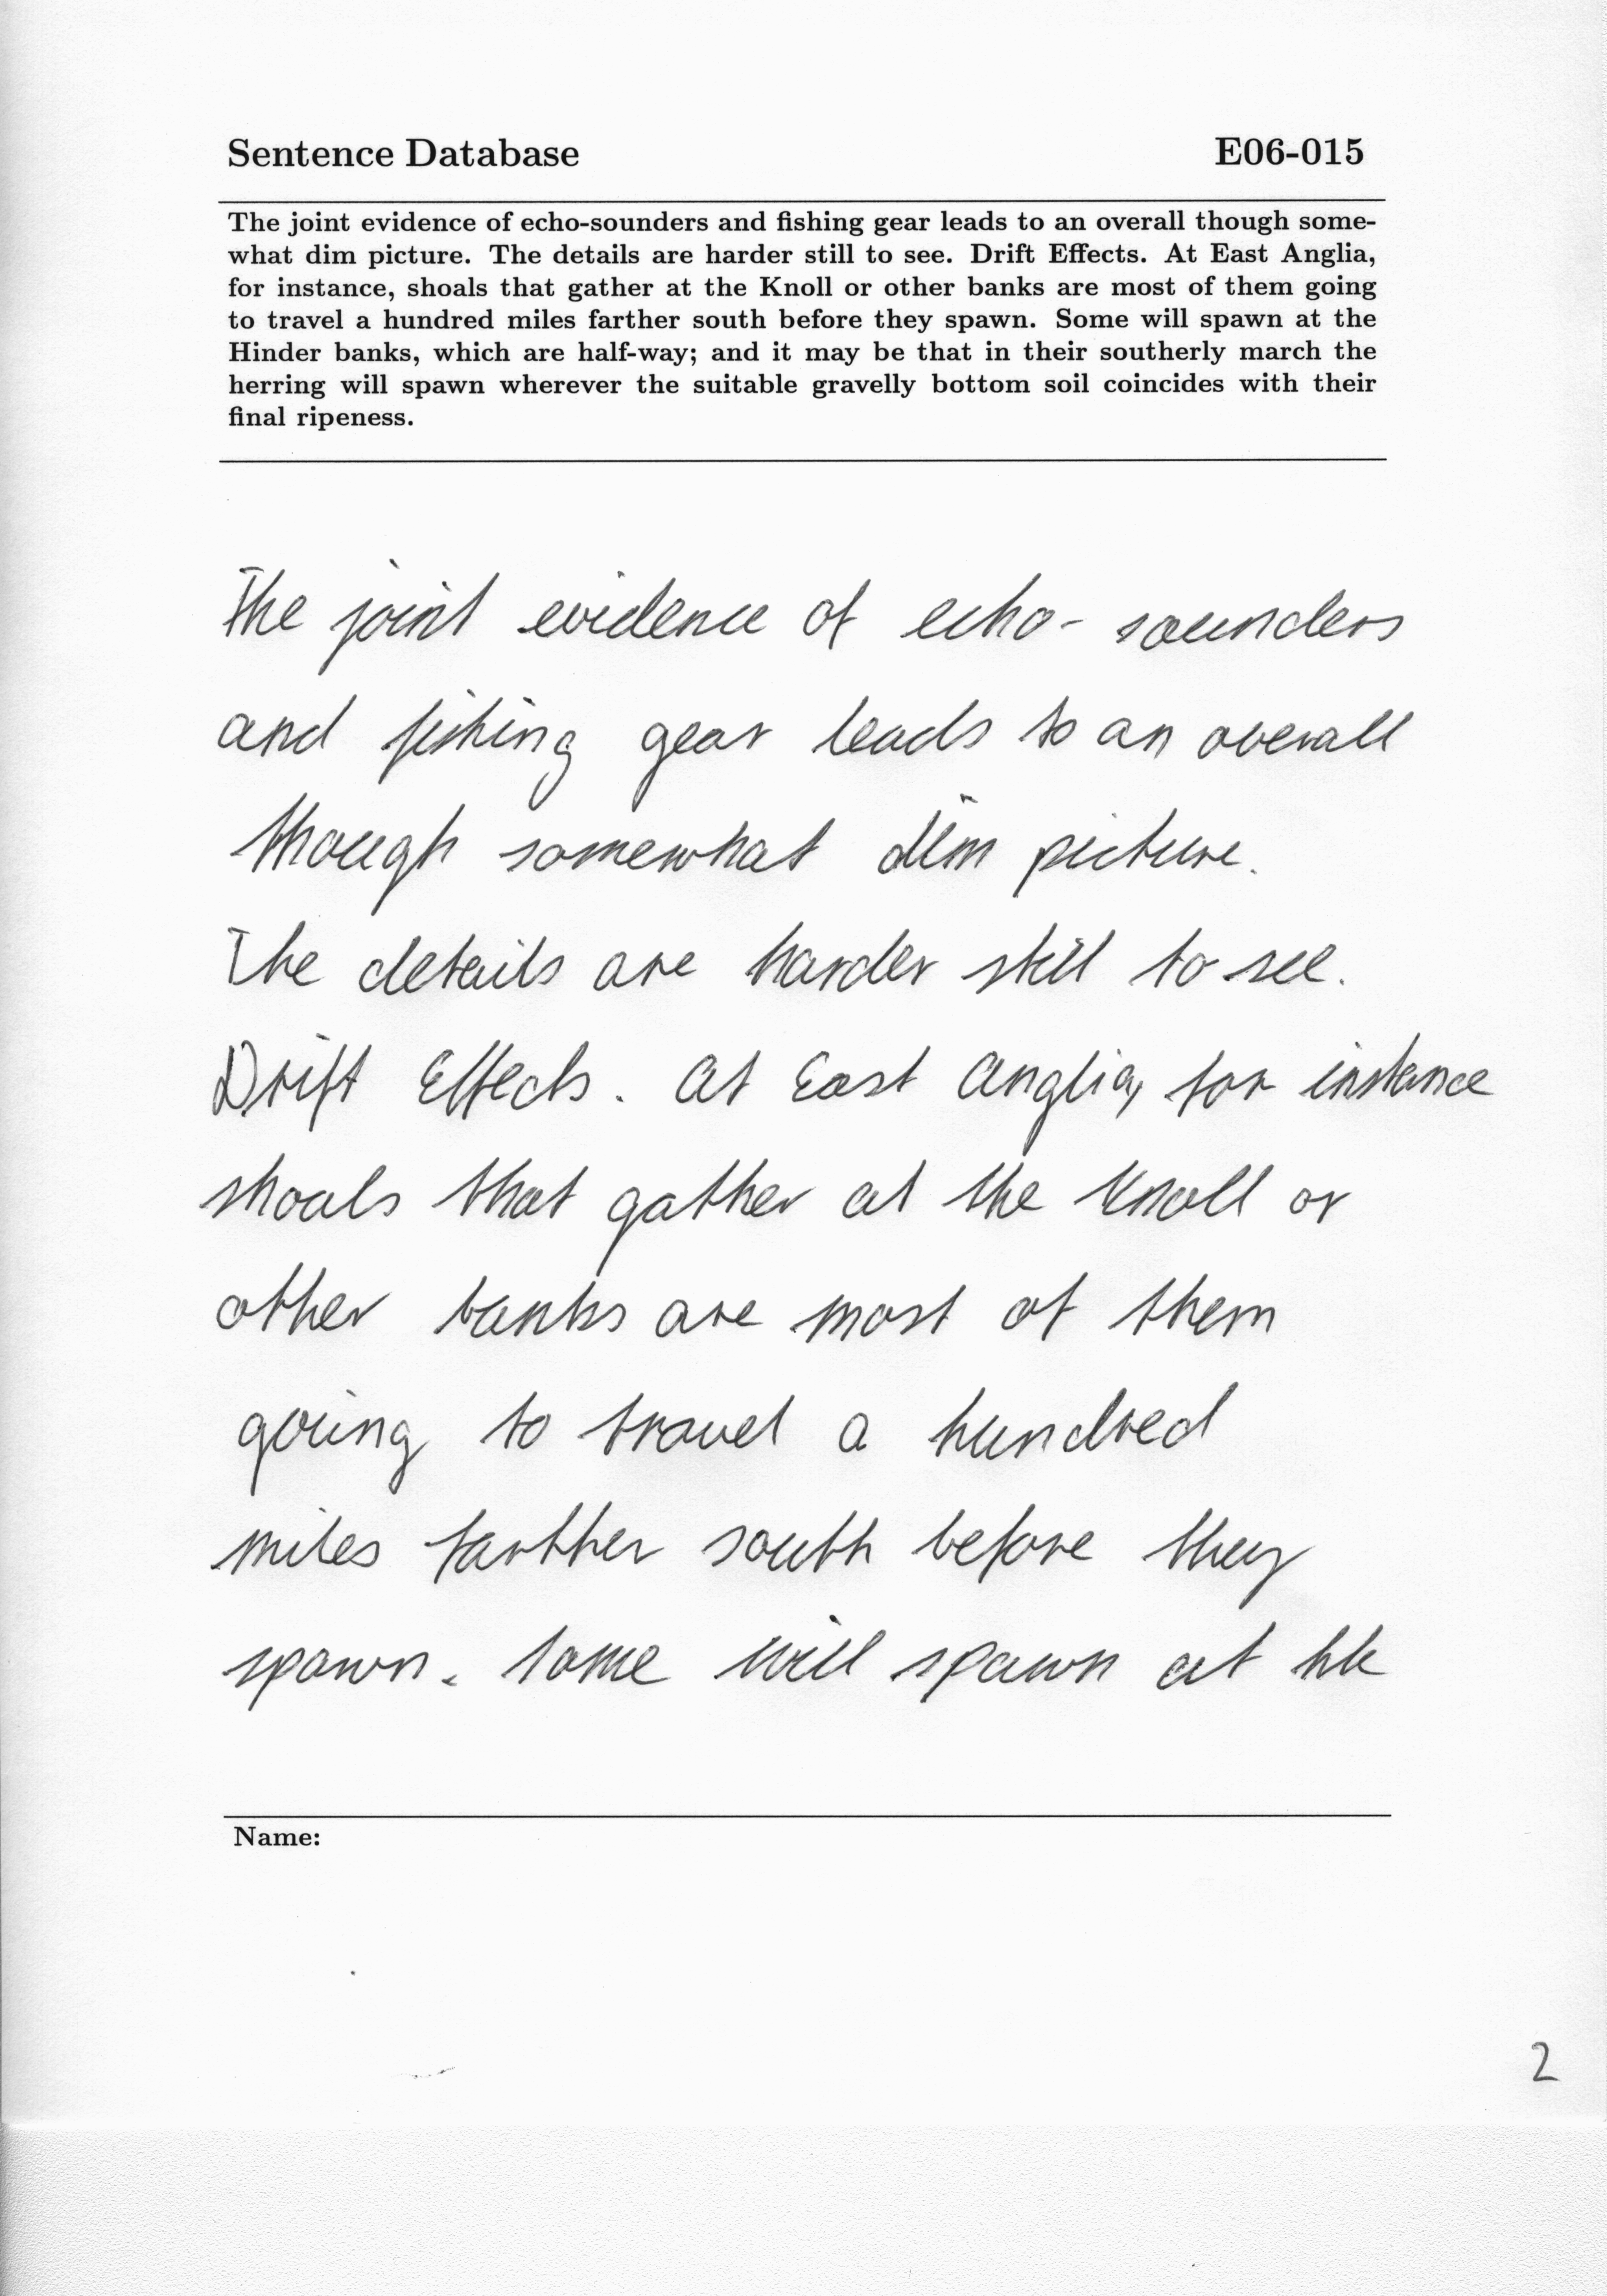 Sentence Database E06-015
The joint evidence of echo-sounders and fishing gear leads to an overall though some-
what dim picture. The details are harder still to see. Drift Effects. At East Anglia,
for instance, shoals that gather at the Knoll or other banks are most of them going
to travel a hundred miles farther south before they spawn. Some will spawn at the
Hinder banks, which are half-way; and it may be that in their southerly march the
herring will spawn wherever the suitable gravelly bottom soil coincides with their
final ripeness.
The joint evidence of echo- sounders
and fishing gear leads to an overall
though somewhat dim picture.
The details are harder still to see.
Drift Effects. At East Anglia, for instance
shoals that gather at the Knoll or
other banks are most of them
going to travel a hundred
miles farther south before they
spawn. Some will spawn at the
Name:
2